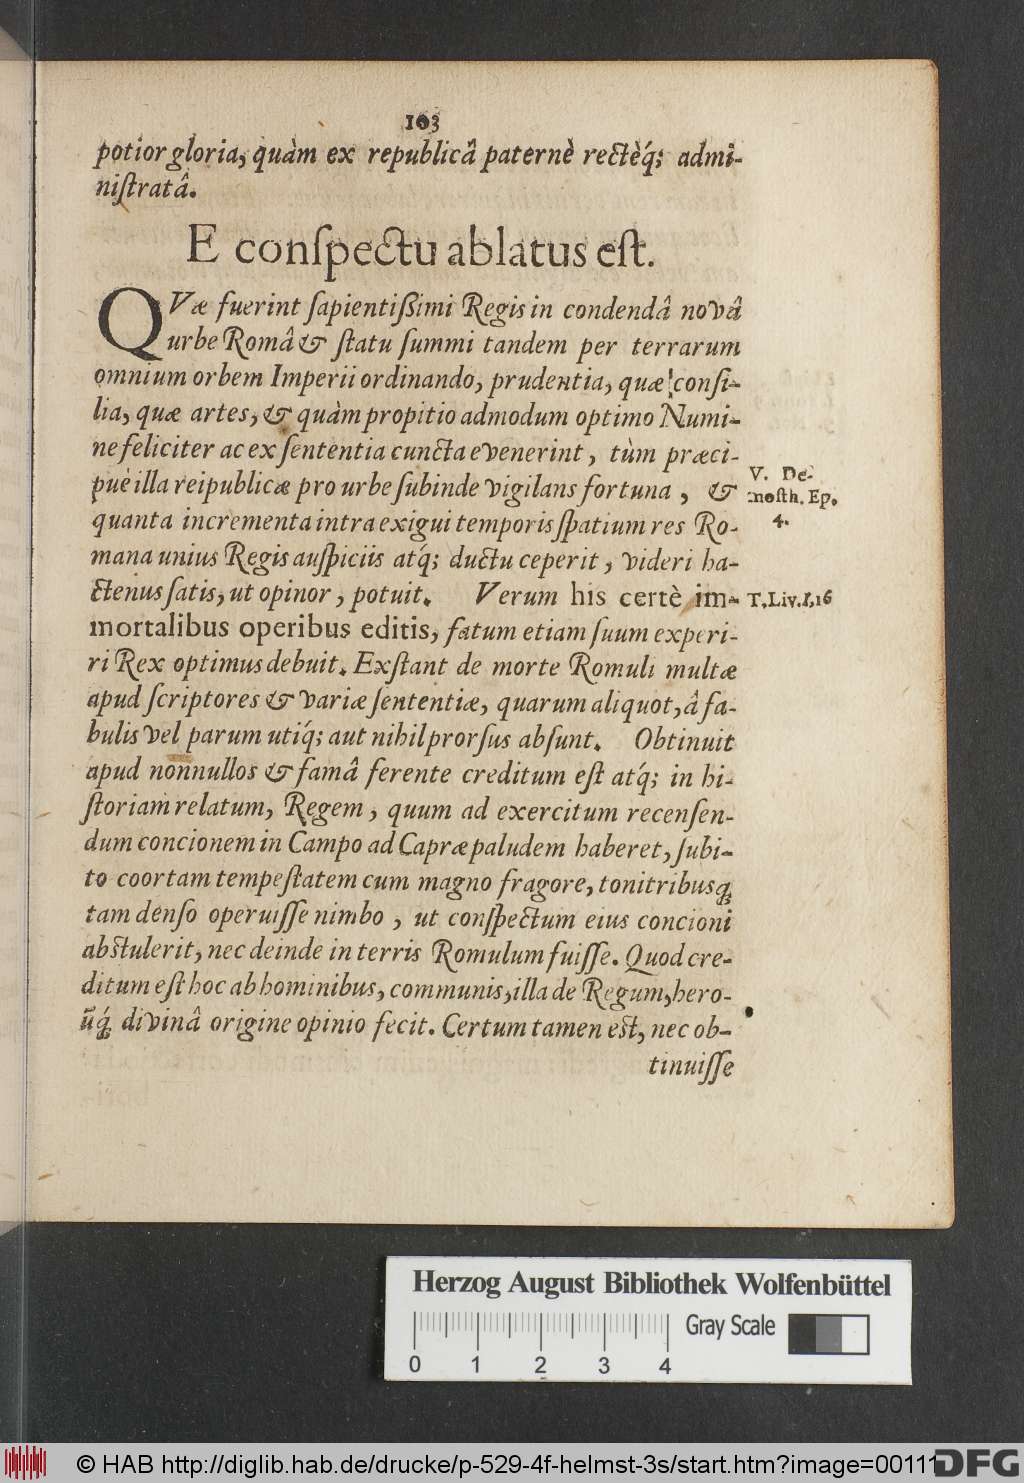 103
potior gloria, quàm ex republicâ paternè rectèq́; admi-
niſtratâ.
E conſpectu ablatus eſt.
QVæ fuerint ſapientiſſimi Regis in condendâ novâ
urbe Româ & ſtatu ſummi tandem per terrarum
omnium orbem Imperii ordinando, prudentia, quæ conſi-
lia, quæ artes, & quàm propitio admodum optimo Numi-
ne feliciter ac ex ſententia cuncta evenerint, tùm præci-
puè illa reipublicæ pro urbe ſubinde vigilans fortuna, &
V. De-
moſth. Ep.
4.
quanta incrementa intra exigui temporis ſpatium res Ro-
mana unius Regis auſpiciis atq́; ductu ceperit, videri ha-
ctenus ſatis, ut opinor, potuit. Verum his certè im-
T. Liv. I, 16
mortalibus operibus editis, fatum etiam ſuum experi-
ri Rex optimus debuit. Exſtant de morte Romuli multæ
apud ſcriptores & variæ ſententiæ, quarum aliquot, â fa-
bulis vel parum utiq́; aut nihil prorſus abſunt. Obtinuit
apud nonnullos & famâ ferente creditum eſt atq́; in hi-
ſtoriam relatum, Regem, quum ad exercitum recenſen-
dum concionem in Campo ad Capræ paludem haberet, ſubi-
to coortam tempeſtatem cum magno fragore, tonitribusq́
tam denſo operuiſſe nimbo, ut conſpectum eius concioni
abſtulerit, nec deinde in terris Romulum fuiſſe. Quod cre-
ditum eſt hoc ab hominibus, communis, illa de Regum, hero-
ūq́ divinâ origine opinio fecit. Certum tamen eſt, nec ob-
tinuiſſe
Herzog August Bibliothek Wolfenbüttel
Gray Scale
0 1 2 3 4
© HAB http://diglib.hab.de/drucke/p-529-4f-helmst-3s/start.htm?image=00111
DFG